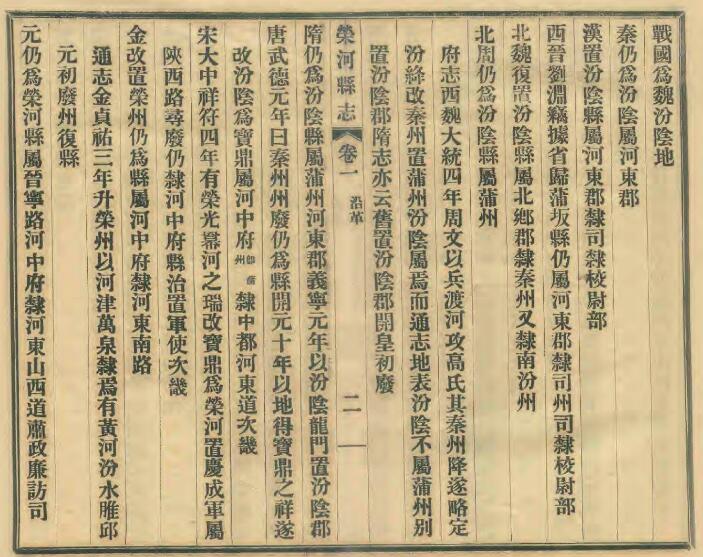 戰國爲魏汾陰地
秦仍爲汾陰屬河東郡
漢置汾陰縣屬河東郡隸司隸校尉部
西晉劉淵竊據省歸蒲坂縣仍屬河東郡隸司州司隸校尉部
北魏復置汾陰縣屬北鄉郡隸秦州又隸南汾州
北周仍爲汾陰縣屬蒲州
府志西魏大統四年周文以兵渡河攻高氏其秦州降遂略定
汾絳改秦州置蒲州汾陰屬焉而通志地表汾陰不屬蒲州别
置汾陰郡隋志亦云舊置汾陰郡開皇初廢
榮河縣志 卷一 沿革 二
隋仍爲汾陰縣屬蒲州河東郡義寧元年以汾陰龍門置汾陰郡
唐武德元年曰秦州州廢仍爲縣開元十年以地得寶鼎之祥遂
改汾陰爲寶鼎屬河中府卽蒲州隸中都河東道次畿
宋大中祥符四年有榮光冪河之瑞改寶鼎爲榮河置慶成軍屬
陝西路尋廢仍隸河中府縣治置軍使次畿
金改置榮州仍爲縣屬河中府隸河東南路
通志金貞祐三年升榮州以河津萬泉隸焉有黃河汾水睢邱
元初廢州復縣
元仍爲榮河縣屬晉寧路河中府隸河東山西道肅政廉訪司